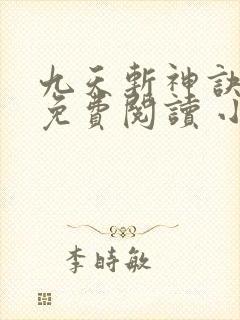 九天斬神訣
免費閱讀 小
李時敏